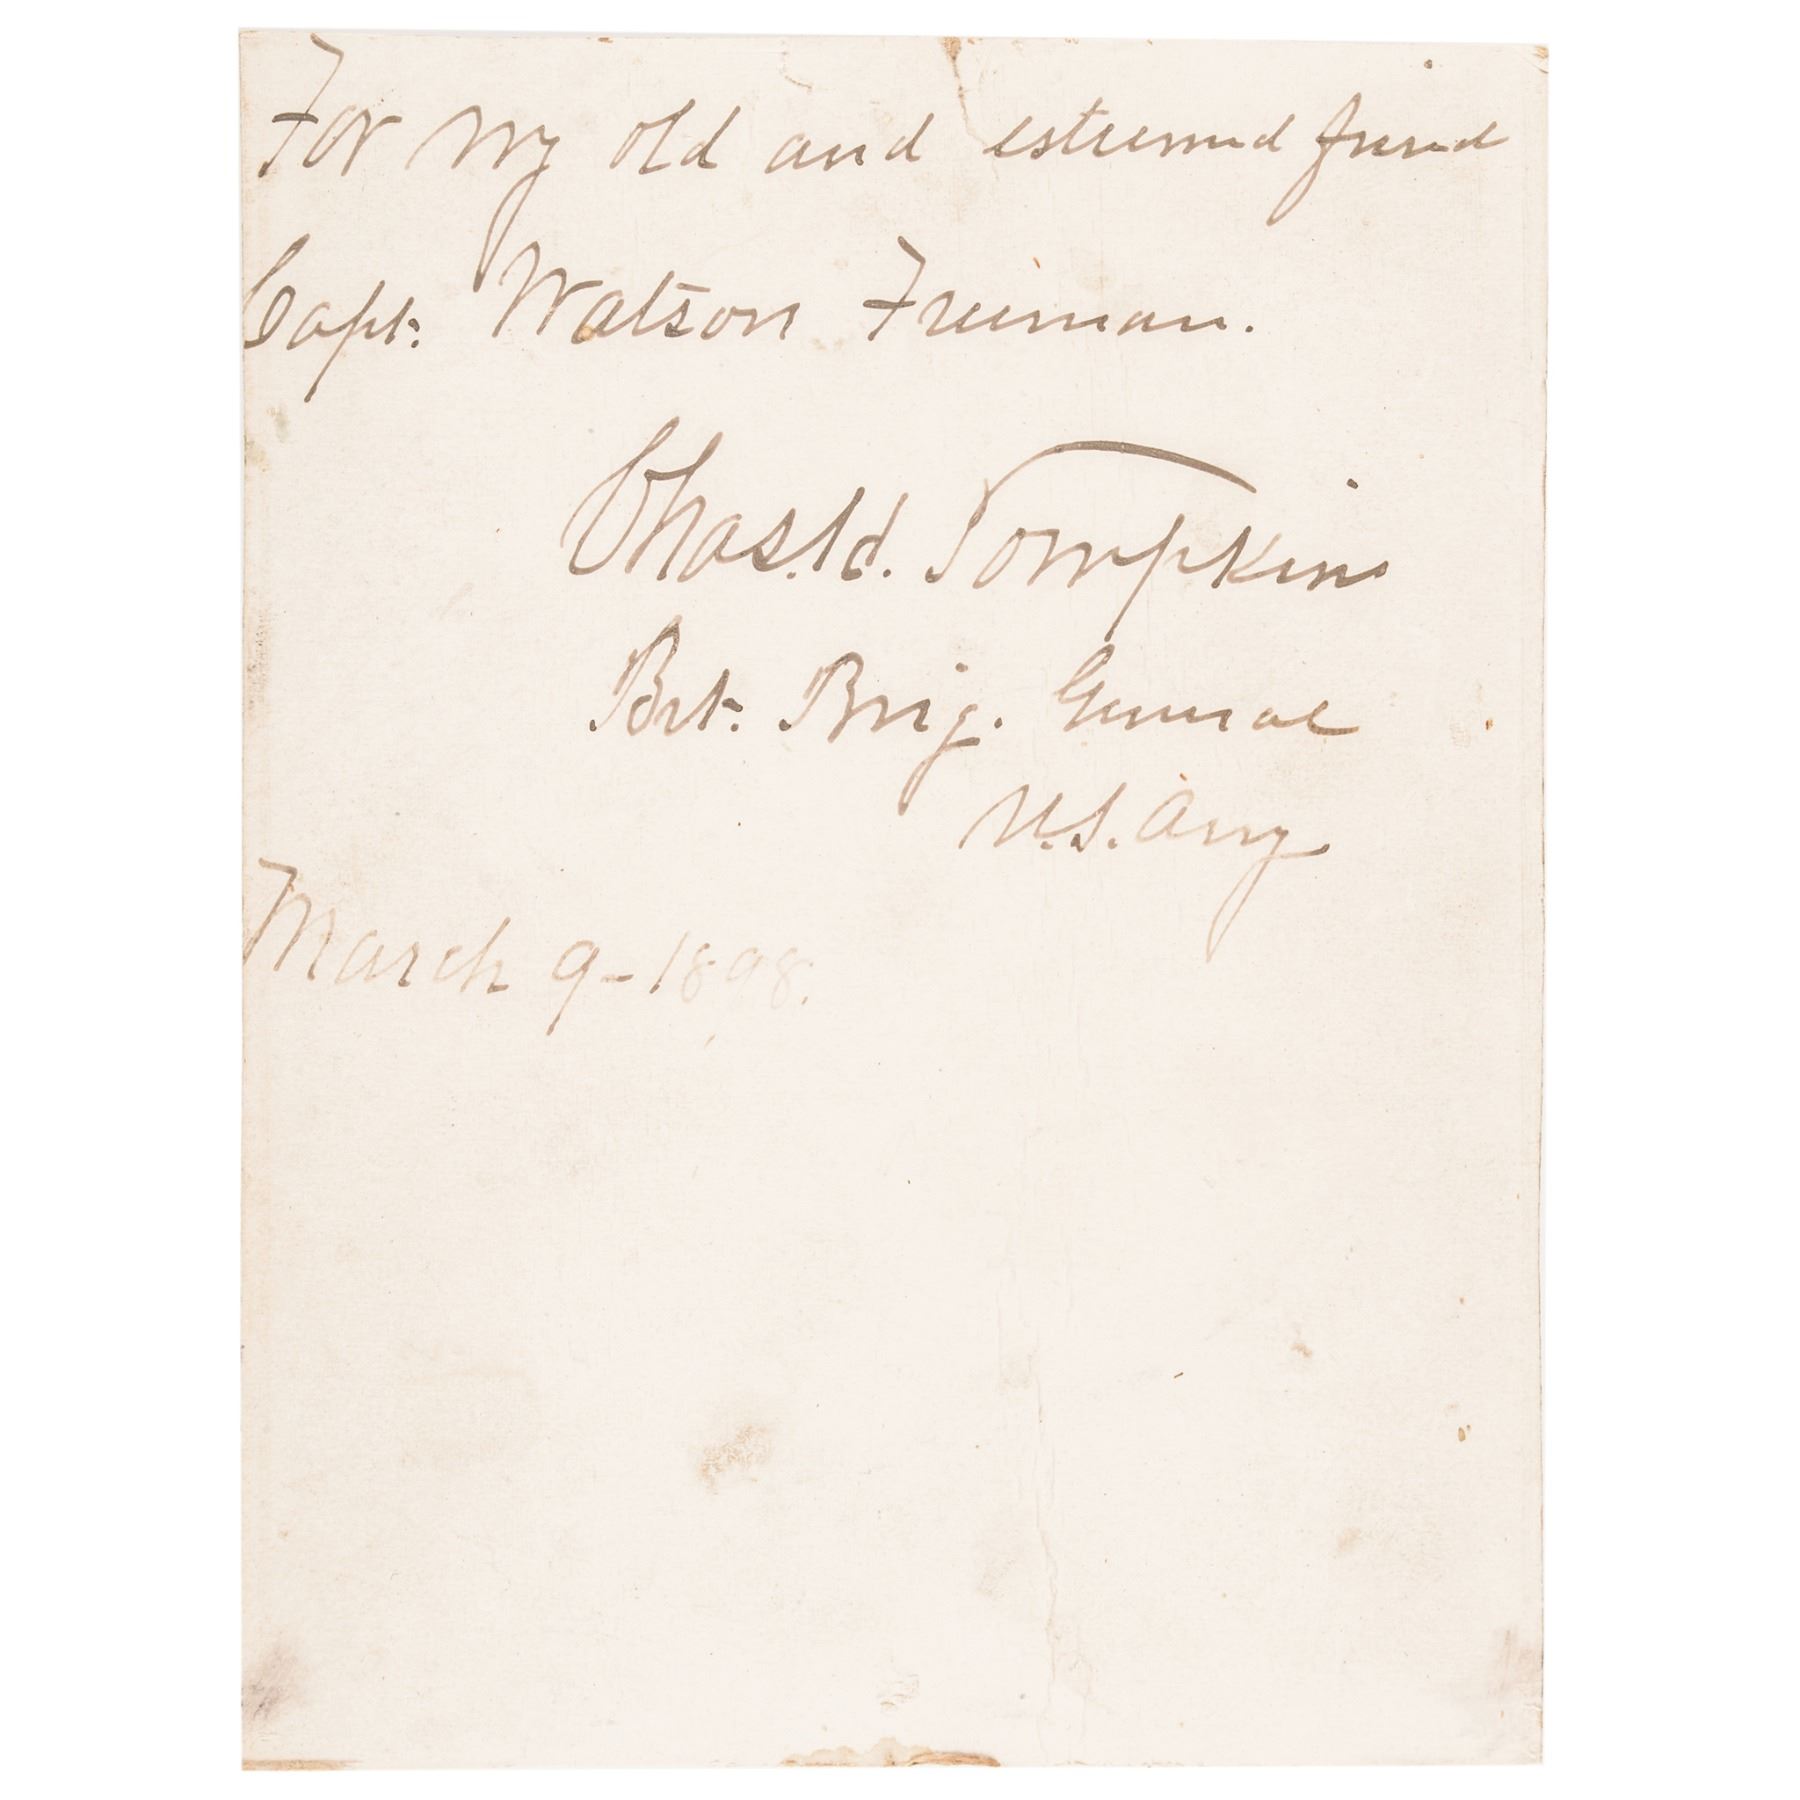 For my old and esteemed friend
Capt. Watson Freeman.
Chas. H. Tompkins
Bvt. Brig. General
U.S. Army
March 9-1898.